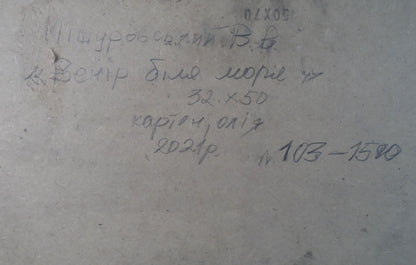 50X70
Мішуровський В.В.
"Вечір біля моря"
32 x 50
картон, олія
2021р.
103-1500